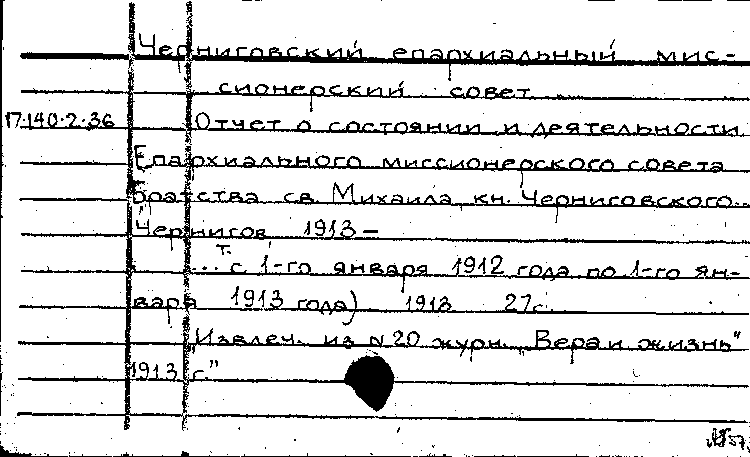 Черниговский епархиальный мис-
сионерский совет
17.140.2.36 Отчет о состоянии и деятельности
Епархиального миссионерского совета
Братства св. Михаила, кн. Черниговского..
Чернигов, 1913 –
т.
... с 1-го января 1912 года по 1-го ян-
варя 1913 года) 1913 27с.
"Извлеч. из N 20 журн. „Вера и жизнь"
1913 г."